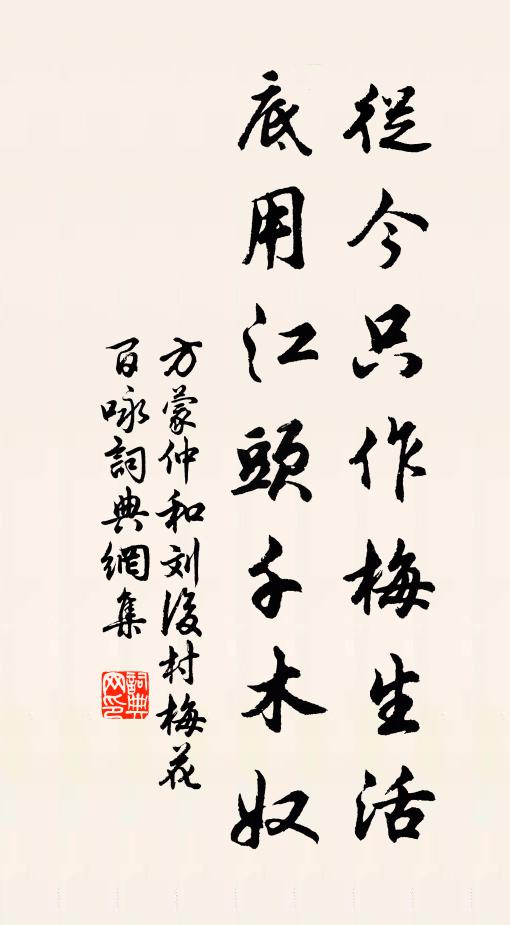 從今只作梅生活
底用江頭千木奴
方蒙仲和刘後村梅花
百咏詞典網集
詞典網印